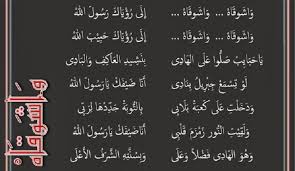 وَاشَوقَاهْ ... وَاشَوقَاهْ ... إِلَى رُؤْيَاكَ رَسُولَ اللهْ
وَاشَوقَاهْ ... وَاشَوقَاهْ ... إِلَى رُؤْيَاكَ حَبِيبَ اللهْ
يَاحَبَايِبْ صَلُّوا عَلَى الهَادِي بِنَشِيدِ العَاكِفِ وَالبَادِي
لَوْ تِسْمَعْ جِبْرِيلْ يِنَادِي أَنَا ضَيْفَكْ يَارَسُولَ اللهْ
وَدَخَلْتِ عَلَى كَعْبَةْ بِلَادِي بِالتُّوبَةْ جَدِّدْهَا لِرَبِّي
وَلَقِيتِ النُّورْ زَمْزَمْ قَلْبِي أَنَا ضَيْفَكْ يَارَسُولَ اللهْ
وَهوَ الهَادِي فَضْلاً وَعَلَى وَبِسُنَّتِهِ الشَّرَفُ الأَعْلَى
وَاشَوقَاهْ